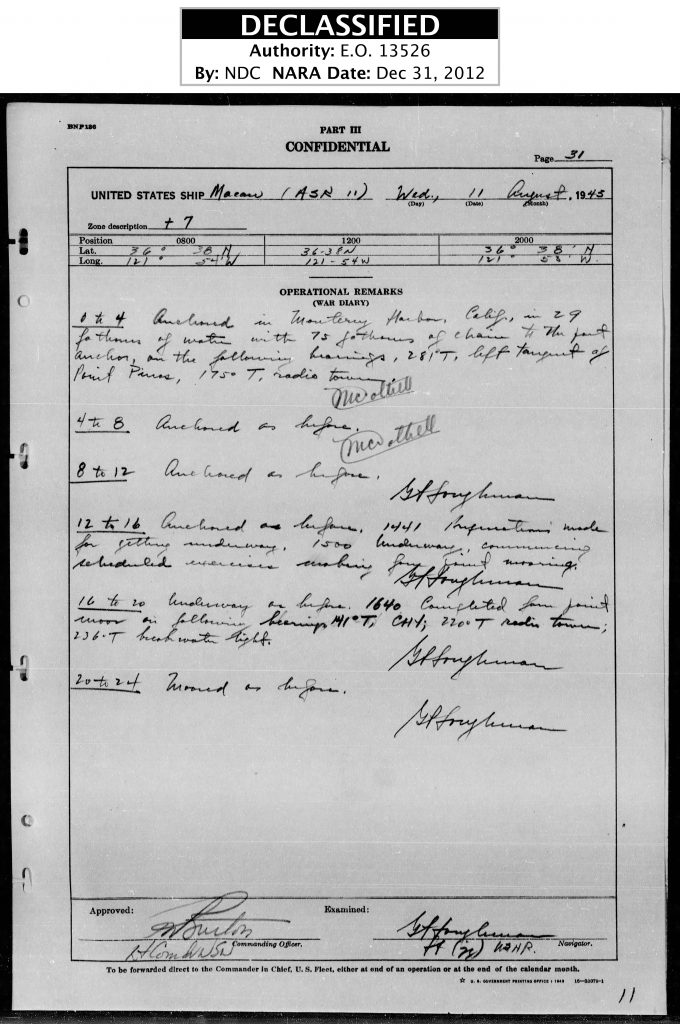 DECLASSIFIED
Authority: E.O. 13526
By: NDC NARA Date: Dec 31, 2012
BNP136
PART III
CONFIDENTIAL
Page 31
UNITED STATES SHIP Macaw (ASR 11) Wed., 11 August, 1943
(Day) (Date) (Month)
Zone description + 7
Position 0800 1200 2000
Lat. 36° 38 N 36-38N 36° 38' N
Long. 121° 54 W 121-54W 121° 53' W.
OPERATIONAL REMARKS
(WAR DIARY)
0 to 4 Anchored in Monterey Harbor, Calif., in 29
fathoms of water with 75 fathoms of chain to the port
anchor, on the following bearings, 281°T, left tangent of
Point Pinos, 175° T, radio tower.
4 to 8 Anchored as before.
8 to 12 Anchored as before.
G F Loughman
12 to 16 Anchored as before. 1441 Preparations made
for getting underway. 1500 Underway, commencing
scheduled exercises making four point moorings.
G F Loughman
16 to 20 Underway as before. 1640 Completed four point
moor on following bearings 141°T, 220°T radio tower;
236°T breakwater light.
G F Loughman
20 to 24 Moored as before.
G F Loughman
Approved: Examined:
G F Loughman
Commanding Officer. Lt (jg) USNR. Navigator.
To be forwarded direct to the Commander in Chief, U. S. Fleet, either at end of an operation or at the end of the calendar month.
☆ U. S. GOVERNMENT PRINTING OFFICE : 1943
11